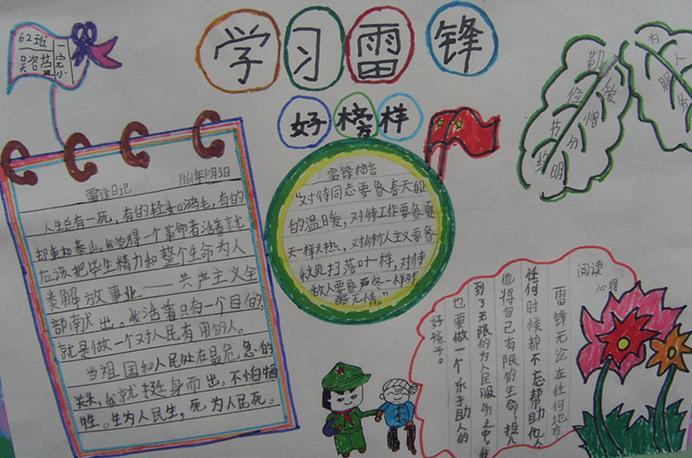 62班
一完小
学习雷锋
好榜样
雷锋日记 1961年10月3日
人生总有一死,有的轻如鸿毛,有的
却重如泰山。我觉得一个革命者活着就
应该把毕生精力和整个生命为人
类解放事业——共产主义全
部献出。我活着只有一个目的,
就是做一个对人民有用的人。
当祖国和人民处在最危急的
关头,我就挺身而出,不怕牺
牲。生为人民生,死为人民死。
雷锋格言
"对待同志要象春天般
的温暖,对待工作要象夏
天一样火热,对待个人主义要象
秋风扫落叶一样,对待
敌人要象严冬一样残
酷无情。"
勤俭节约
爱憎分明
为人民服务
阅读
心得
雷锋无论在任何地方
任何时候都不忘帮助他人
他将自己有限的生命,投入
到了无限的为人民服务之中。我
也要做一个乐于助人的
好孩子。